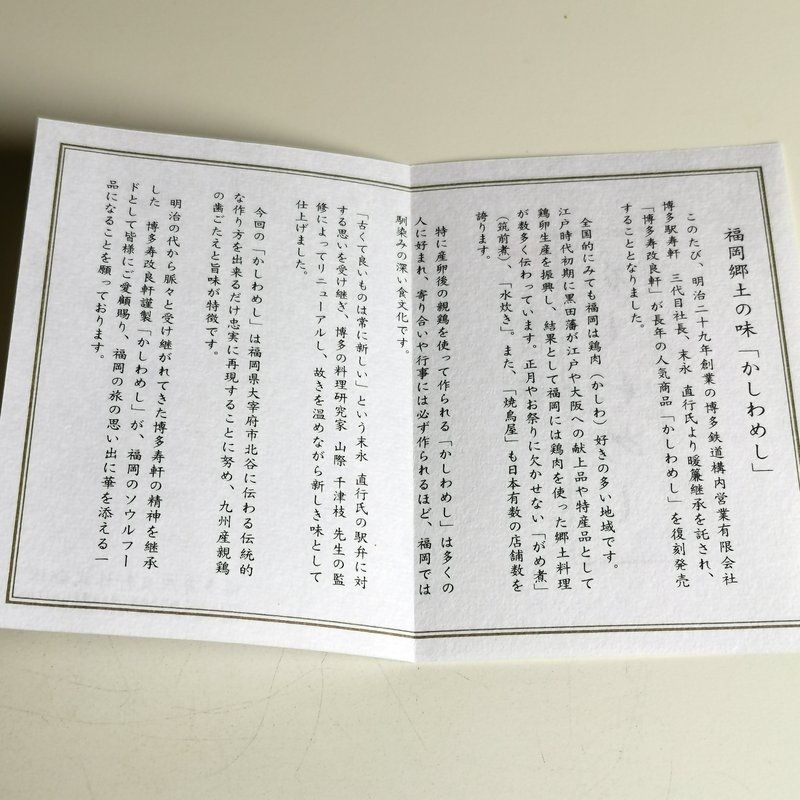 福岡郷土の味「かしわめし」
このたび、明治二十九年創業の博多鉄道構内営業有限会社
博多駅寿軒　三代目社長、末永　直行氏より暖簾継承を託され、
「博多寿改良軒」が長年の人気商品「かしわめし」を復刻発売
することとなりました。
全国的にみても福岡は鶏肉（かしわ）好きの多い地域です。
江戸時代初期に黒田藩が江戸や大阪への献上品や特産品として
鶏卵生産を振興し、結果として福岡には鶏肉を使った郷土料理
が数多く伝わっています。正月やお祭りに欠かせない「がめ煮」
（筑前煮）、「水炊き」。また、「焼鳥屋」も日本有数の店舗数を
誇ります。
特に産卵後の親鶏を使って作られる「かしわめし」は多くの
人に好まれ、寄り合いや行事には必ず作られるほど、福岡では
馴染みの深い食文化です。
「古くて良いものは常に新しい」という末永　直行氏の駅弁に対
する思いを受け継ぎ、博多の料理研究家　山際　千津枝　先生の監
修によってリニューアルし、故きを温めながら新しき味として
仕上げました。
今回の「かしわめし」は福岡県大宰府市北谷に伝わる伝統的
な作り方を出来るだけ忠実に再現することに努め、九州産親鶏
の歯ごたえと旨味が特徴です。
明治の代から脈々と受け継がれてきた博多寿軒の精神を継承
した　博多寿改良軒謹製「かしわめし」が、福岡のソウルフー
ドとして皆様にご愛顧賜り、福岡の旅の思い出に華を添える一
品になることを願っております。